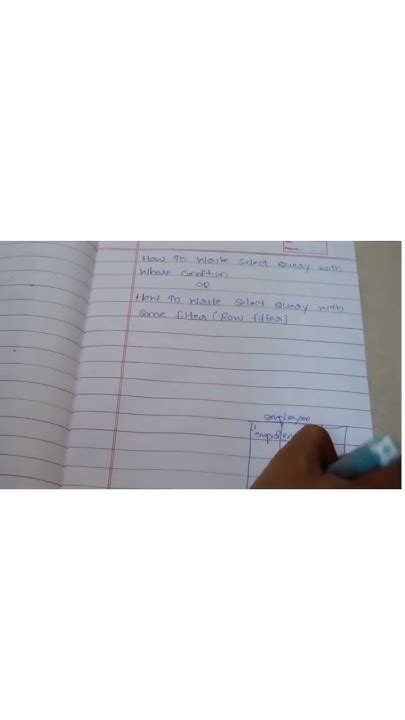 How To Write Select Query with
where condition
OR
How To Write Select Query with
Some filter (Row filter)
employee
empid